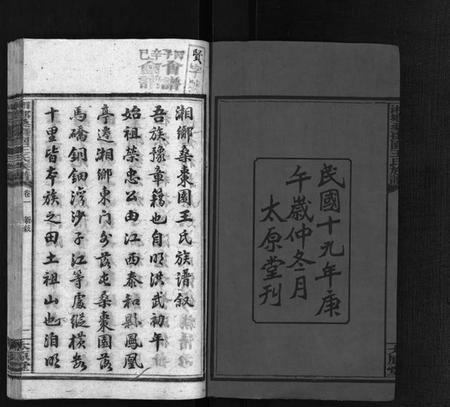 民國十九年庚
午歲仲冬月
太原堂刊
湘鄉桑棗園王氏族譜叙
吾族豫章籍也自明洪武初年
始祖榮忠公由江西泰和縣鳳凰
亭遷湘鄉東門外落屯桑棗園落
馬橋銅鈿灣沙子江等處縱橫數
十里皆本族之田土祖山也洎明
太原堂